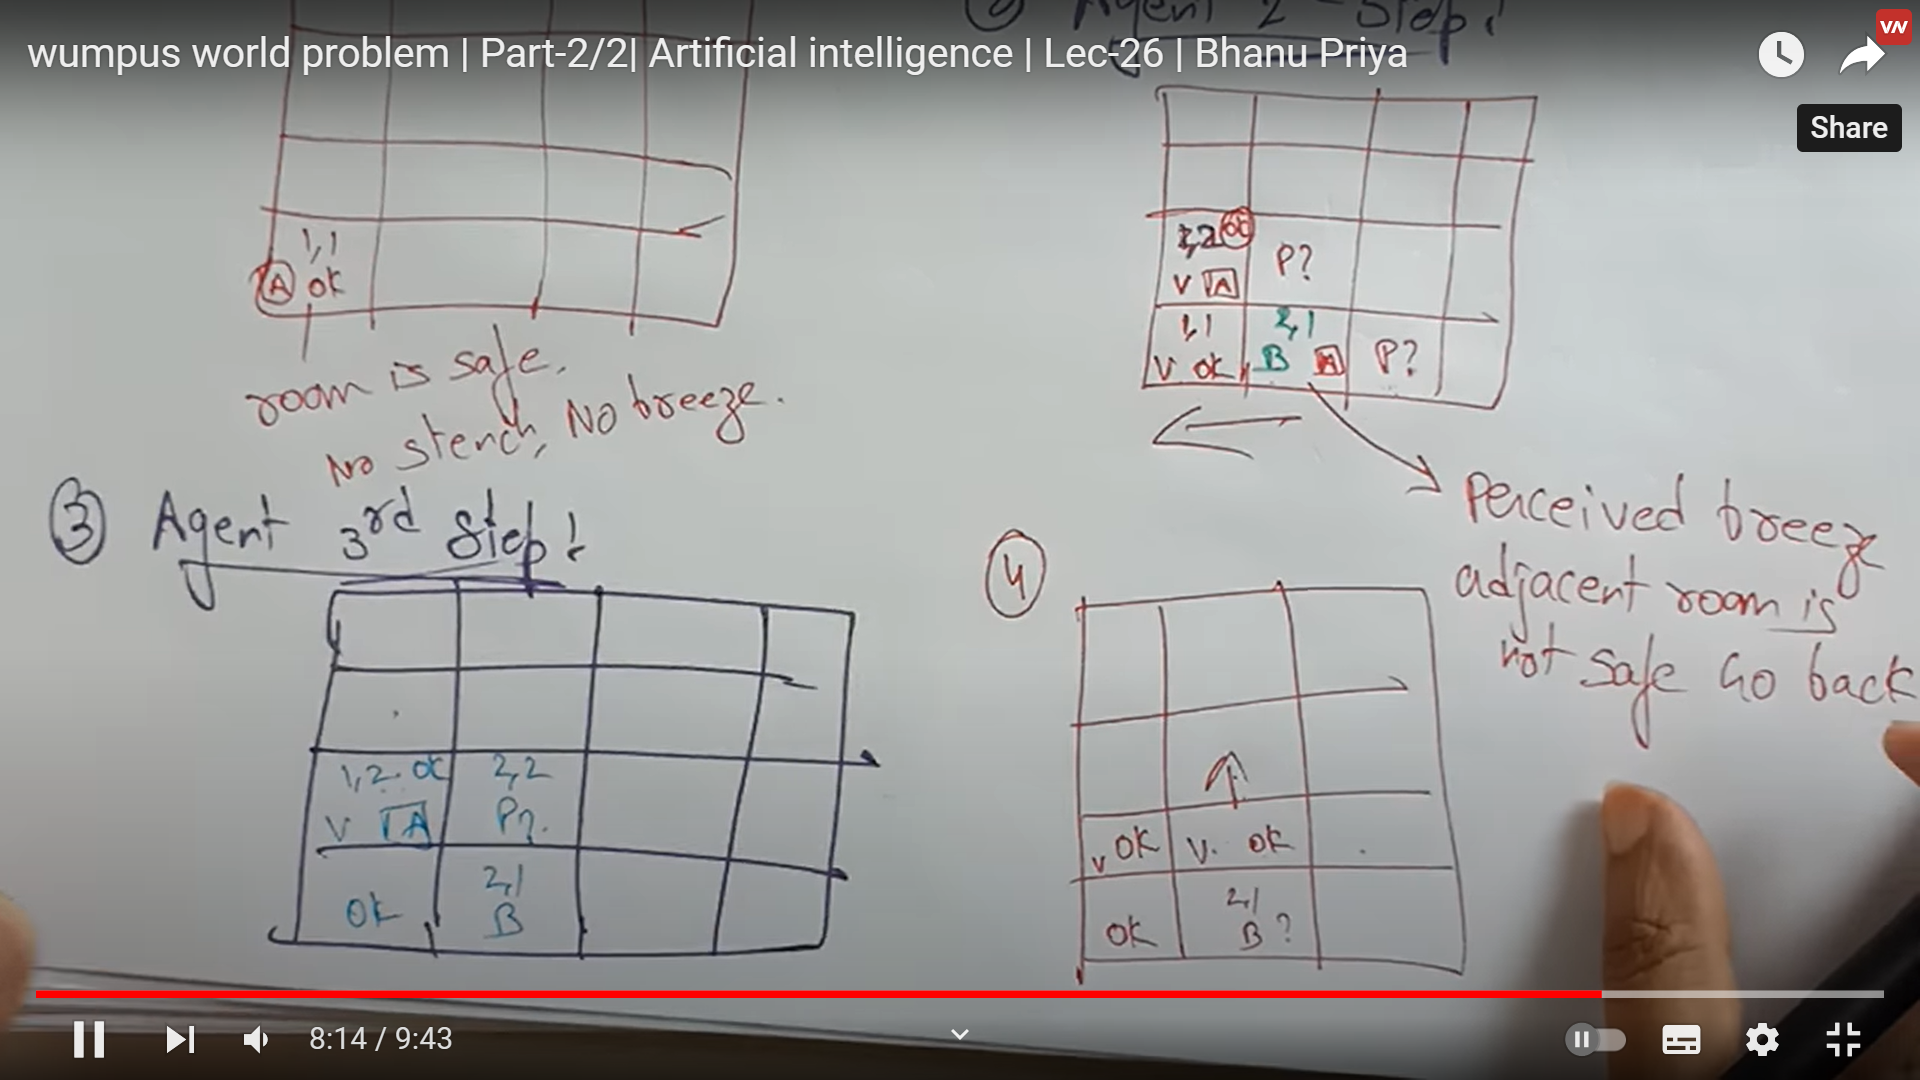 ② Agent 2 Step!
wumpus world problem | Part-2/2| Artificial intelligence | Lec-26 | Bhanu Priya
VN
Share
1,1
A OK
room is safe.
No stench, No breeze.
1,2 OK
V A P?
1,1 2,1
V OK B A P?
Perceived breeze
adjacent room is
not safe Go back
③ Agent 3rd Step!
1,2. OK 2,2
V A P?.
2,1
OK B
④
V OK V. OK
2,1
OK B ?
8:14 / 9:43